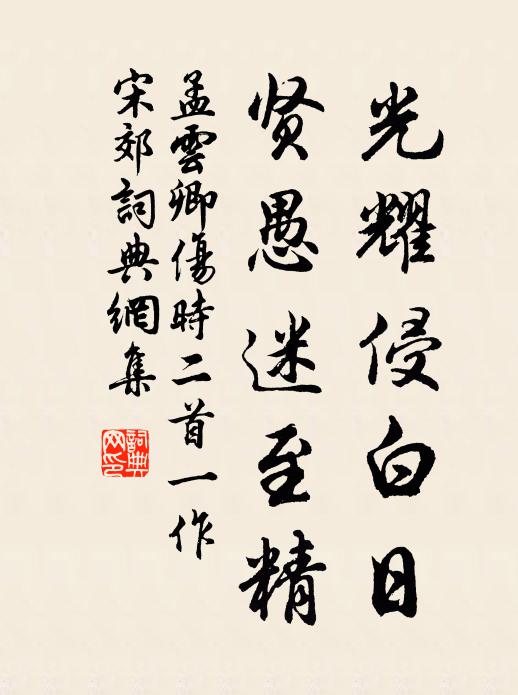 光耀侵白日
贤愚迷至精
孟雲卿傷時二首一作
宋郊詞典網集
詞典
网印